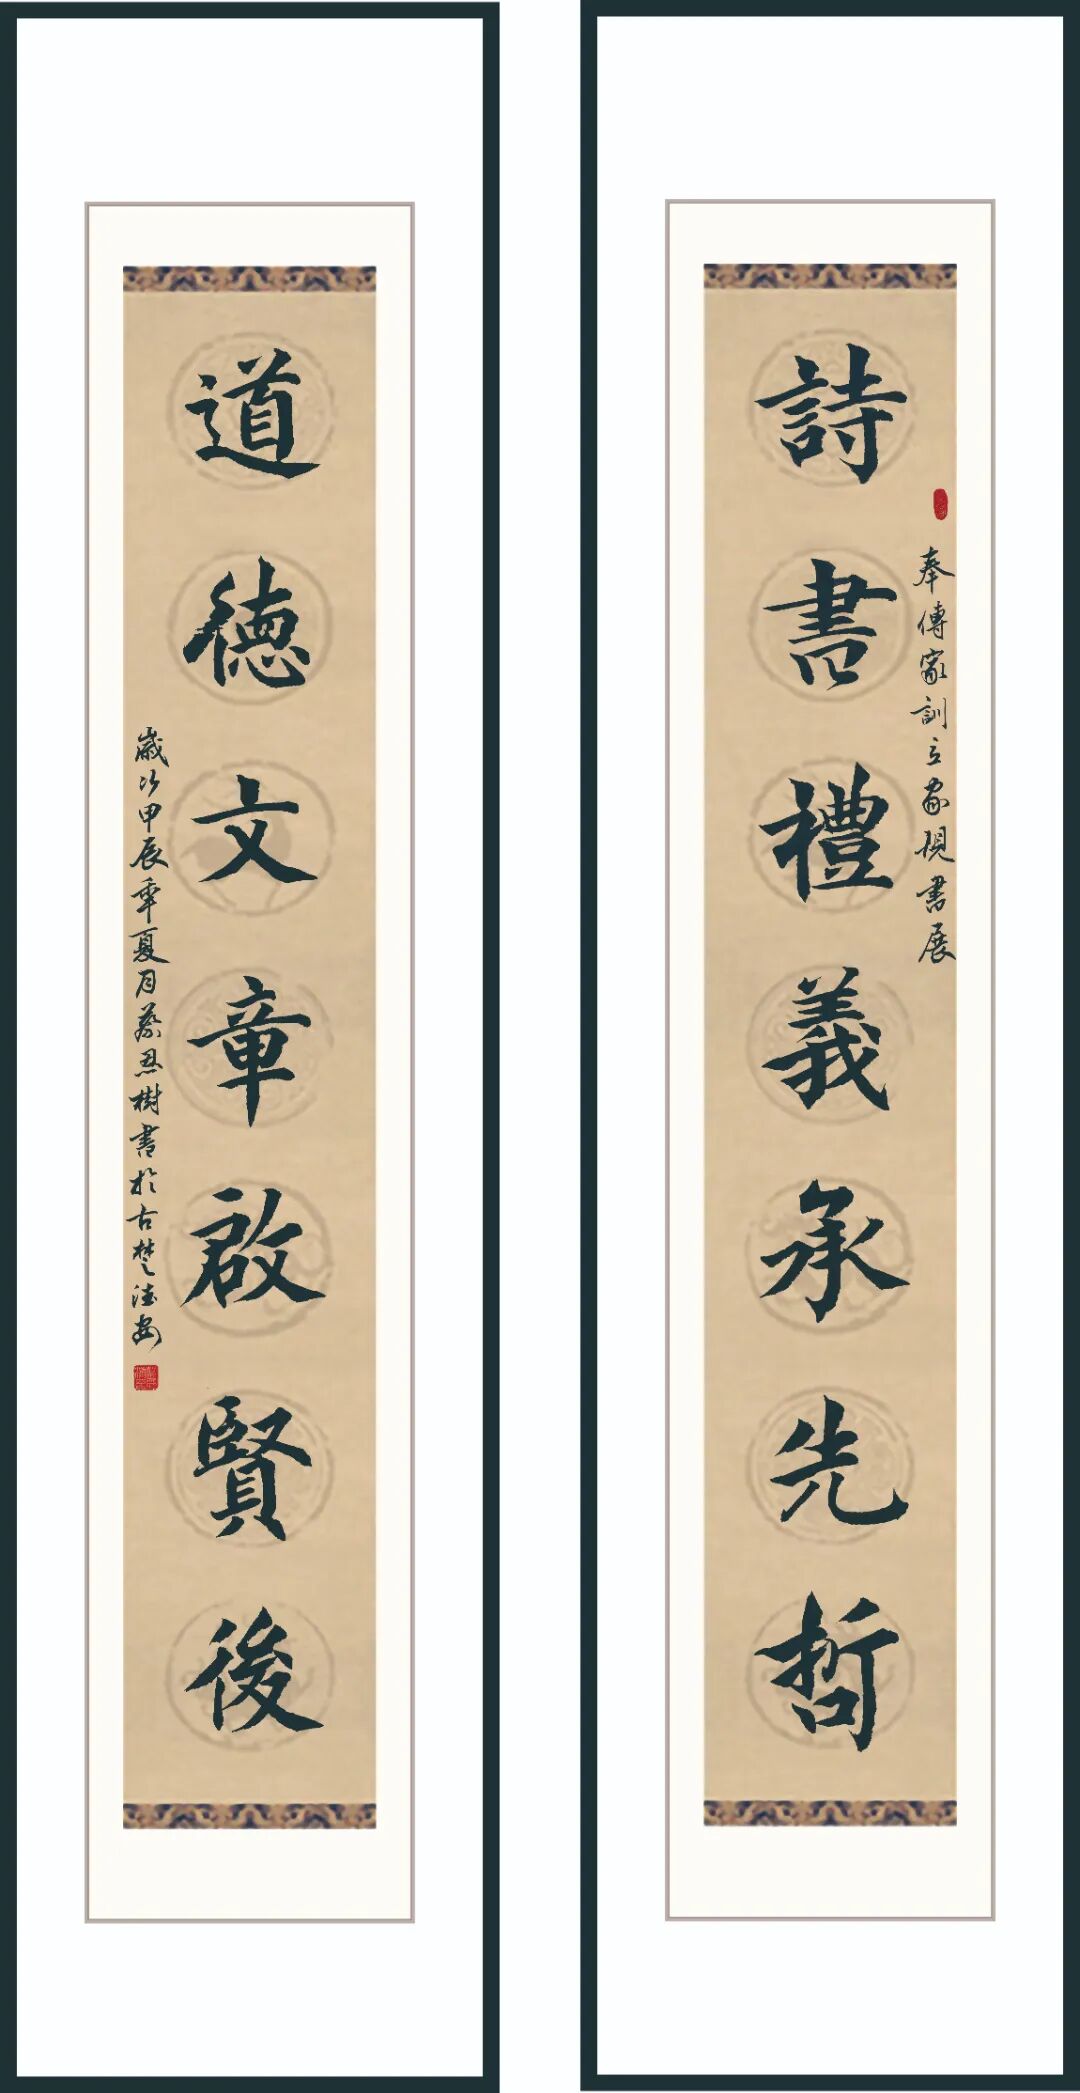 詩書禮義承先哲
奉傳家訓立家規書展
道德文章啟賢後
歲次甲辰年夏月蔡恩樹書於古楚德安